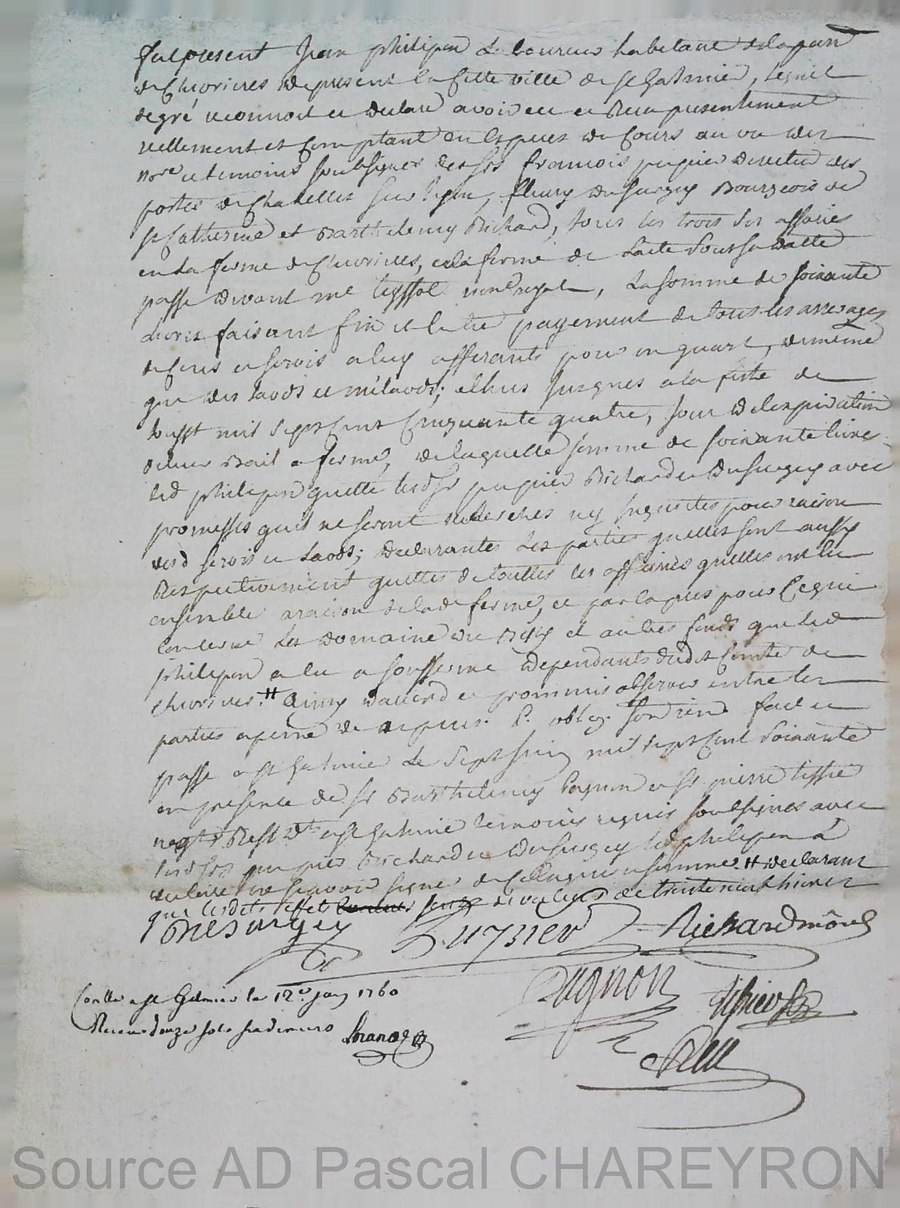 fut present Jean philipon Laboureur habitant de la parr
de Chevrieres de present en cette ville de St Galmier, lequel
de gré reconnoit et declare avoir eu et Receu presentement
reellement et Comptant en especes de Cours au vu des
nore et temoins soubsignes des srs francois pupier directeur des
postes de Chazelles sur lyon, fleury Dusurgey Bourgeois de
St Catherine et Barthelemy Richard, tous les trois
en la ferme de Chevrieres, en la ferme de
passé devant me, La somme de soixante
Livres faisant fin et entier payement de tous les arrerages
de Cens et servis a luy afferants pour un quart, de même
que des Laods et milaods, echus Jusques a la feste de
mil sept Cent Cinquante quatre, Jour de l'expiration
de leur Bail a ferme, de laquelle somme de soixante livres
led philipon quitte lesd srs pupier Richard et Dusurgey avec
promesses qu'ils ne seront recherches ny inquietes pour raison
desd servis et Laods; declarantes Les parties quelles sont aussy
Respectivement quittes de toutes les affaires quelles ont eu
ensemble a raison de lad ferme, et par expres pour Ce qui
Concerne Les Domaine du et autres fonds que led
philipon a eu a sousferme dependants dudit Comté de
chevrieres.H Ainsy convenu et prommis observer entre les
parties a peine de. obleg. fait et
passé a St Galmier Le sept mil sept Cent soixante
en presence de sr Barthelemy pagnon et sr pierre tissier
negts Resid a St Galmier temoins requis soubsignes avec
lesd srs pupier Richard et Dusurgey led philipon a
declaré ne scavoir signer de Ce enquis et sommé H declarant
que lesdits effets de valeur de trente neuf livres
Dusurgey Pupier Richard môrel
Pagnon tissier
Conllé a St Galmier le 12e janv 1760
Receu douze sols six deniers
Source AD Pascal CHAREYRON